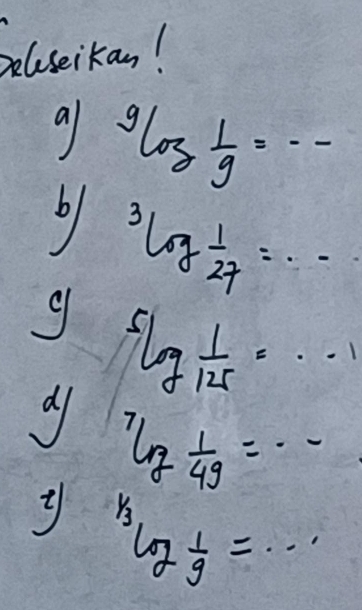 Seleseikan!
a) ⁹log 1/9 = --
b) ³log 1/27 = ...
c) ⁵log 1/125 = ...
d) ⁷log 1/49 = --
e) ¹/³log 1/9 = ...